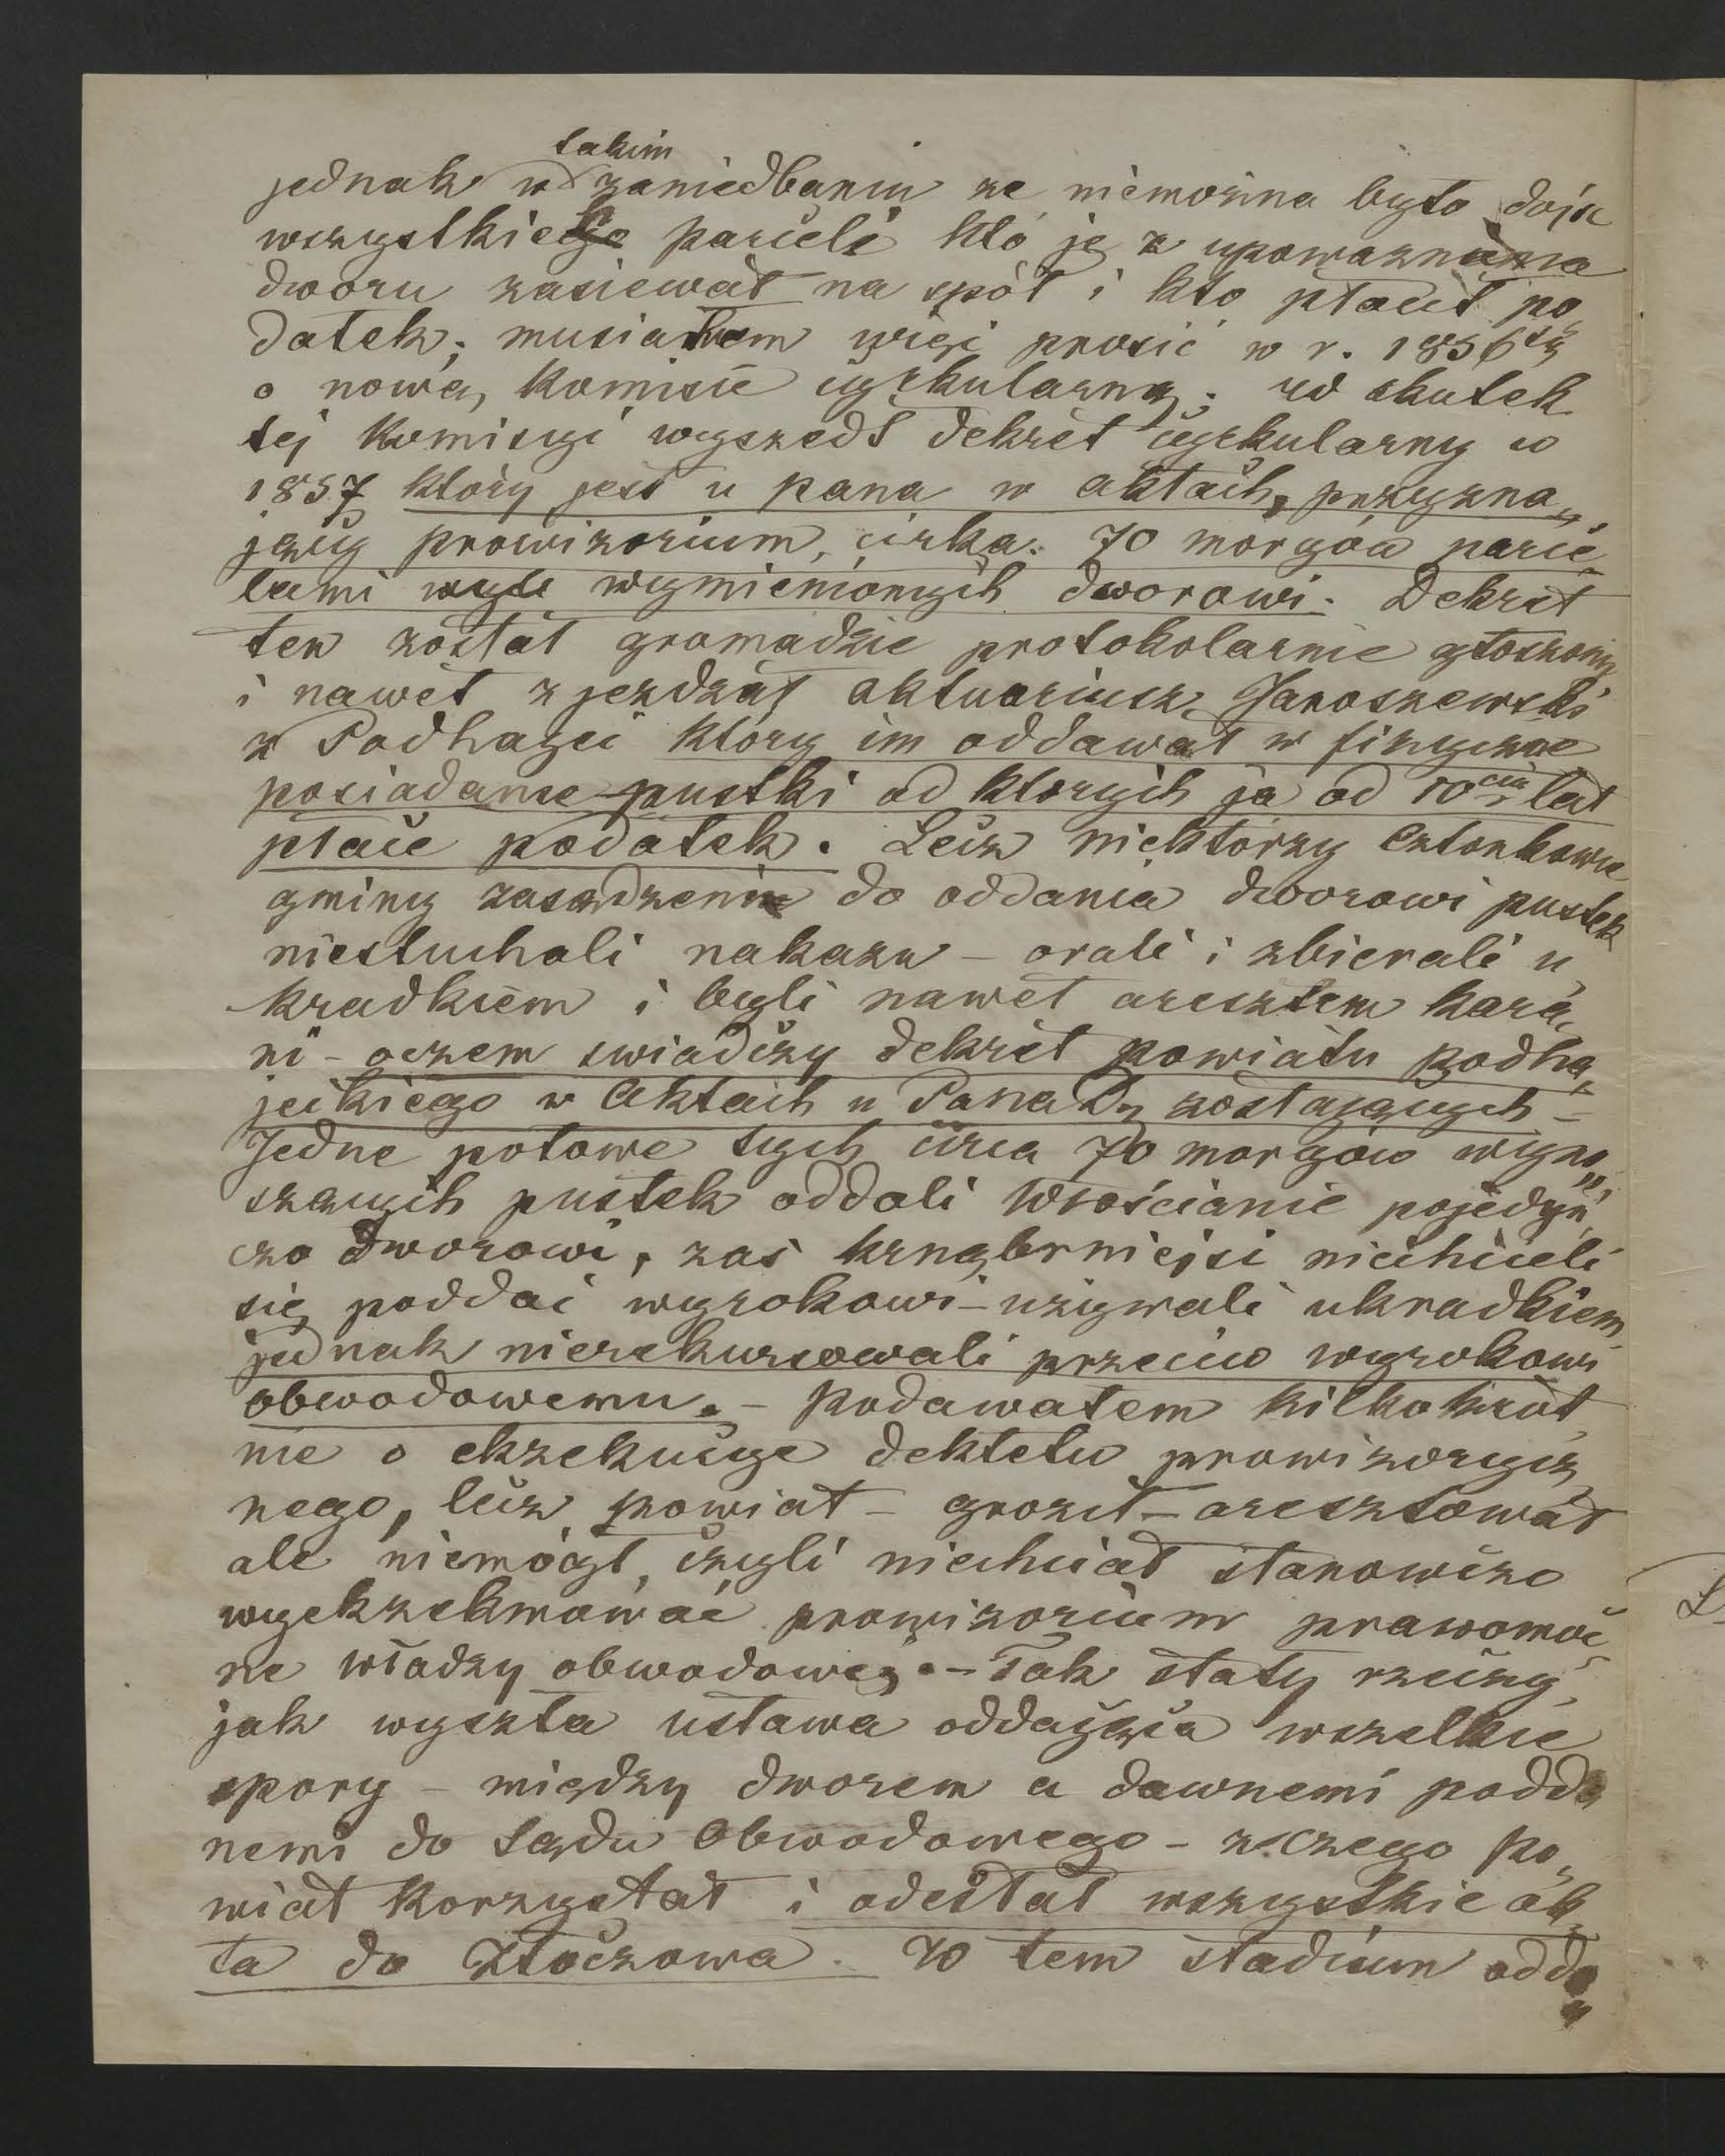 takim
jednak w zaniedbaniu ze niemożna było dojść
wszystkiego parceli kto je z upoważnienia
dworu zasiewał na spół i kto płacił po„
datek; musiałem więc prosić w r. 1856tą
o nową Komisie cyrkularną; w skutek
tej Komisyi wyszedł dekret cyrkularny w
1857 który jest u pana w aktach, przyzna„
jący prowizorium, cirka. 70 morgów parce„
lami wymienionych dworowi. Dekret
ten został gromadzie protokolarnie ogłoszony
i nawet zjezdzał aktuariusz Jaroszewski
z Podhajec który im oddawał w fizyczne
posiadanie pustki od ktorych ja od 10ciu lat
płace podatek. Lecz niektórzy Członkowie
gminy zasądzeni do oddania dworowi pustek
niesłuchali nakazu – orali i zbierali u„
kradkiem i byli nawet aresztem kara„
ni – oczem swiadczy dekret powiatu podha„
jeckiego w Aktach u Pana D. zostających –
Jedne połowe tych circa 70 morgów wyno„
szących pustek oddali Włościanie pojedyń„
czo dworowi, zas krnąbrniejsi niechcieli
się poddać wyrokowi – uzywali ukradkiem
jednak nierekursowali przeciw wyrokowi
obwodowemu. – Podawałem kilkokrot„
nie o ekzekucye dektetu prowizorycz„
nego, lecz powiat – groził – aresztował
ale niemógł, czyli niechciał stanowczo
wyekzekwować prowizorium prawomoc„
ne władzy obwodowej. – Tak stały rzeczy,
jak wyszła ustawa oddająca wszelkie
spory – między dworem a dawnemi podda„
nemi do Sądu Obwodowego – z czego po„
wiat korzystał i odesłał wszystkie ak„
ta do Złoczowa. W tem stadium odda„